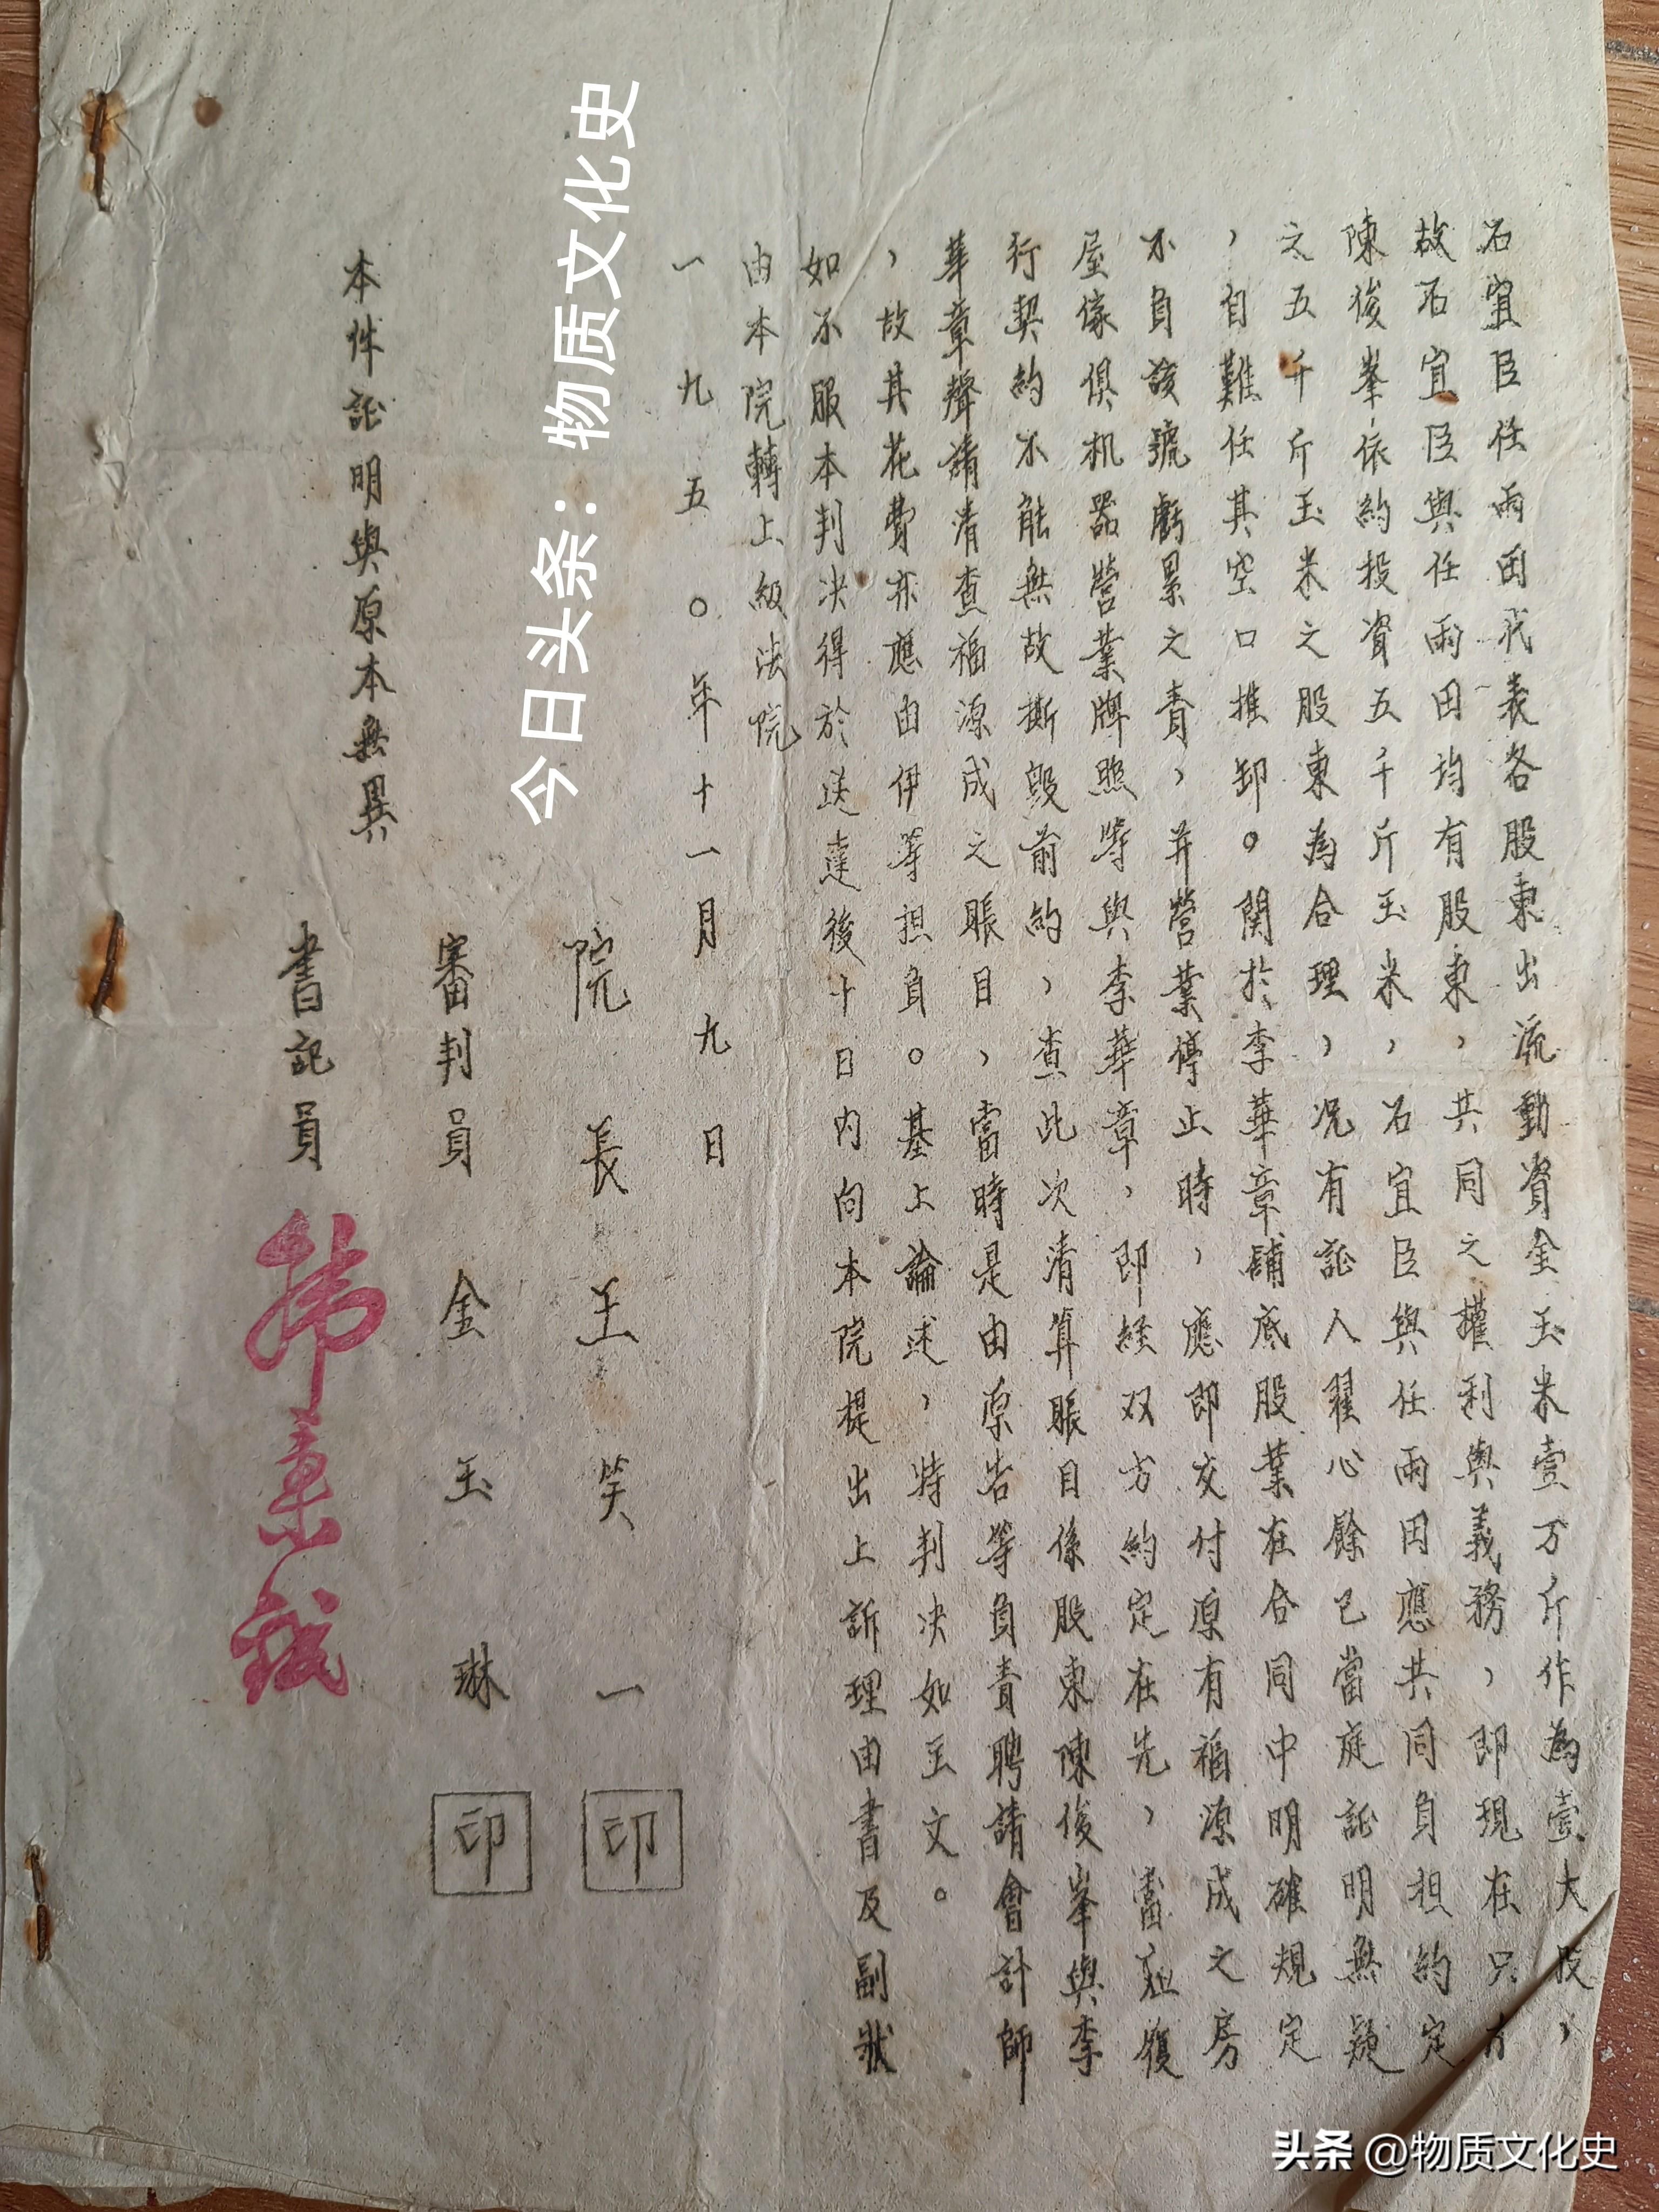 石宜臣任雨田代表各股東出流動資金玉米壹万斤作為壹大股，
故石宜臣與任雨田均有股東，共同之權利與義務，即現在只有
陳俊峯依約投資五千斤玉米，石宜臣與任雨田應共同負担約定
之五千斤玉米之股東為合理，况有証人翟心餘已當庭証明無疑
，自難任其空口推卸。関於李華章舖底股業在合同中明確規定
不負該號虧累之責，并營業停止時，應即交付原有福源成之房
屋傢俱机器營業牌照等與李華章，即経双方約定在先，當  復
行契約不能無故撕毀前約，查此次清算賬目係股東陳俊峯與李
華章聲請清查福源成之賬目，當時是由原告等負責聘請會計師
，故其花費亦應由伊等担負。基上論述，特判决如主文。
如不服本判决得於送達後十日内向本院提出上訴理由書及副狀
由本院轉上級法院
一九五〇年十一月九日
院長王笑一 印
審判員金玉琳 印
書記員
本件証明與原本無異
今日头条：物质文化史
头条 @物质文化史